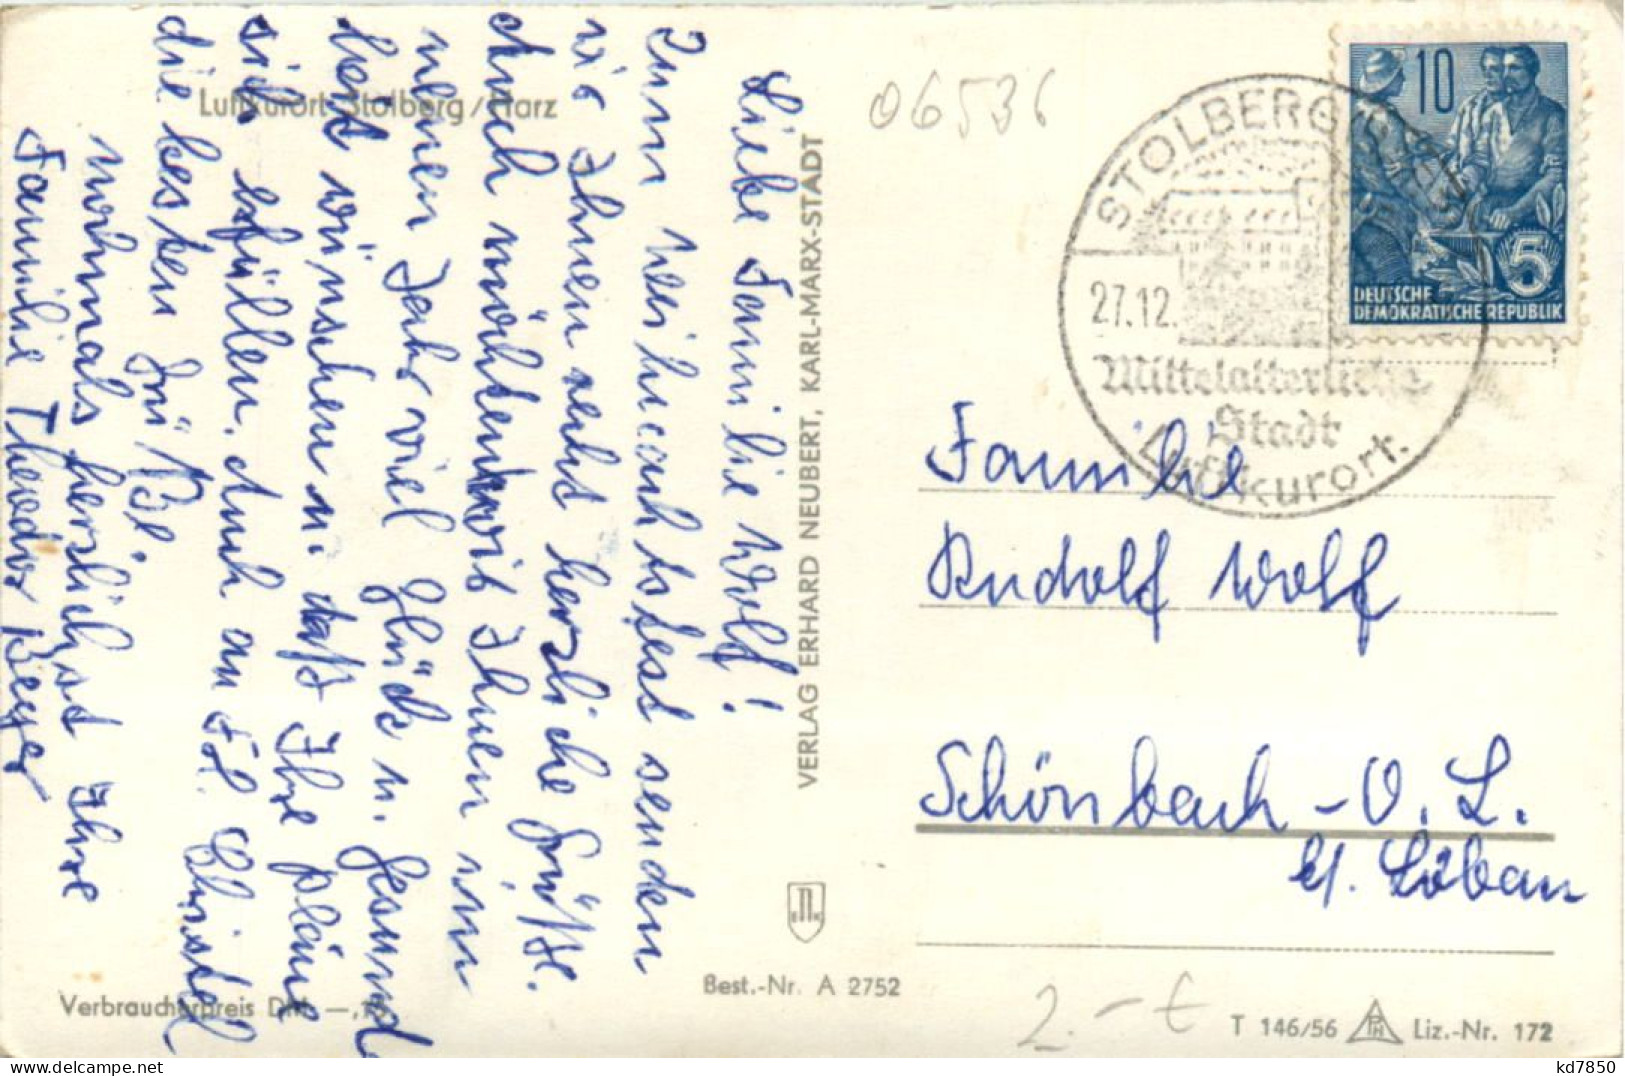 Luftkurort Stolberg/Harz
Liebe Familie Wolf!
Zum Weihnachtsfest senden
wir Ihnen recht herzliche Grüße.
Auch möchten wir Ihnen im
neuen Jahr viel Glück u. Gesund
heit wünschen u. daß Ihre Pläne
sich erfüllen. Auch an Frl. Christel
die besten Grüße.
Nochmals herzlichst Ihre
Familie Theodor Beyer
Verbraucherpreis DM —,
VERLAG ERHARD NEUBERT, KARL-MARX-STADT
Best.-Nr. A 2752
06536
STOLBERG
27.12.
Mittelalterliche
Stadt
Luftkurort.
10
5
DEUTSCHE
DEMOKRATISCHE REPUBLIK
Familie
Rudolf Wolf
Schönbach - O. L.
b/. Löbau
2.- €
T 146/56 Liz.-Nr. 172
kd7850